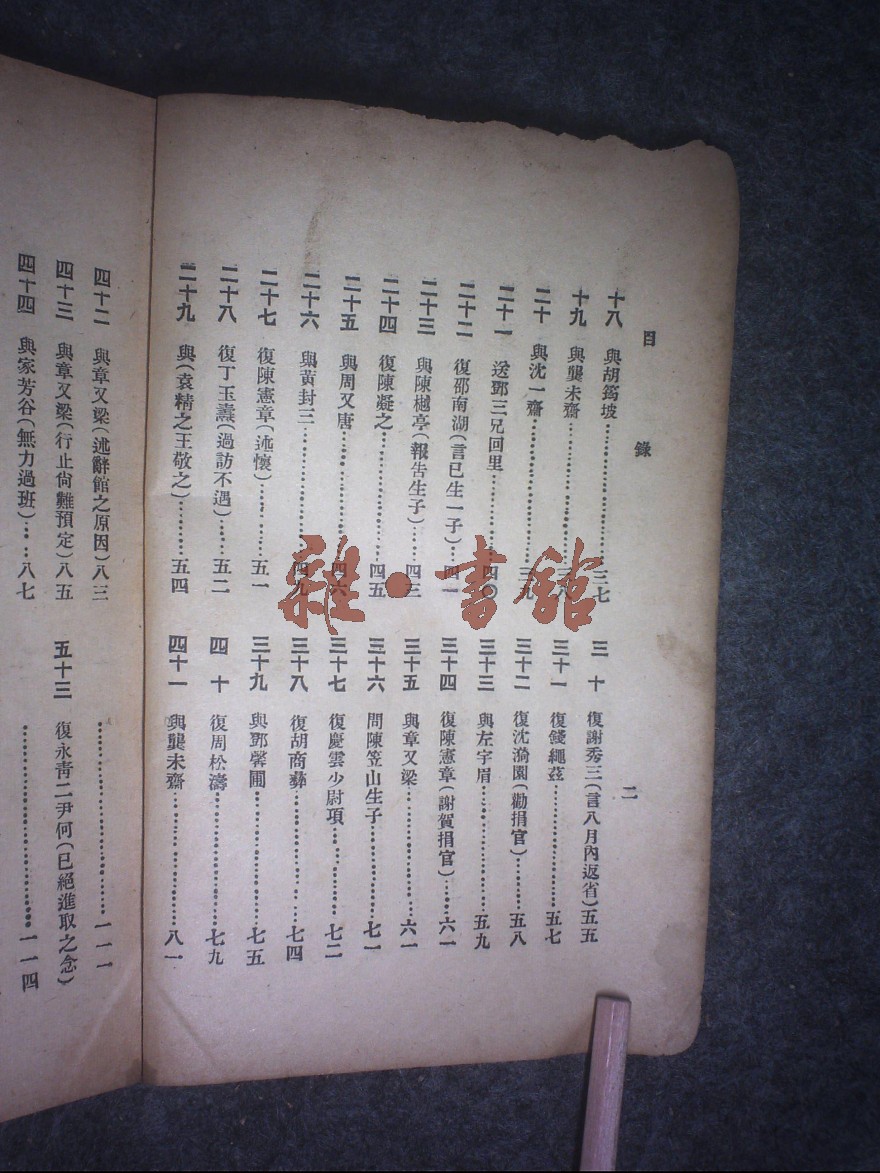 目錄
十八 與胡筠坡………三七
十九 與龔未齋………三八
二十 與沈一齋………三九
二十一 送鄧三兄回里………四〇
二十二 復邵南湖(言已生一子)…四一
二十三 與陳樾亭(報告生子)…四三
二十四 復陳凝之………四五
二十五 與周又唐………四六
二十六 與黃封三………四九
二十七 復陳憲章(述懷)………五一
二十八 復丁玉壽(過訪不遇)……五二
二十九 與(袁精之王敬之)………五四
三十 復謝秀三(言八月內返省)五五
三十一 復錢繩茲………五七
三十二 復沈漪園(勸捐官)………五八
三十三 與左字眉………五九
三十四 復陳憲章(謝賀捐官)……六一
三十五 與章又梁………六一
三十六 問陳笠山生子………七一
三十七 復慶雲少尉項………七二
三十八 復胡商彝………七四
三十九 與鄧馨圃………七五
四十 復周松濤………七九
四十一 與龔未齋………八一
二
四十二 與章又梁(述辭館之原因)八三
四十三 與章又梁(行止尙難預定)八五
四十四 與家芳谷(無力過班)……八七
………一一一
五十三 復永靑二尹何(已絕進取之念)
………一一四
雜·書館